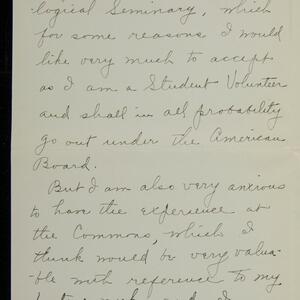 logical Seminary, which
for some reasons I would
like very much to accept
as I am a Student Volunteer
and shall in all probability
go out under the American
Board.
But I am also very anxious
to have the experience at
the Commons, which I
think would be very valua-
ble with reference to my